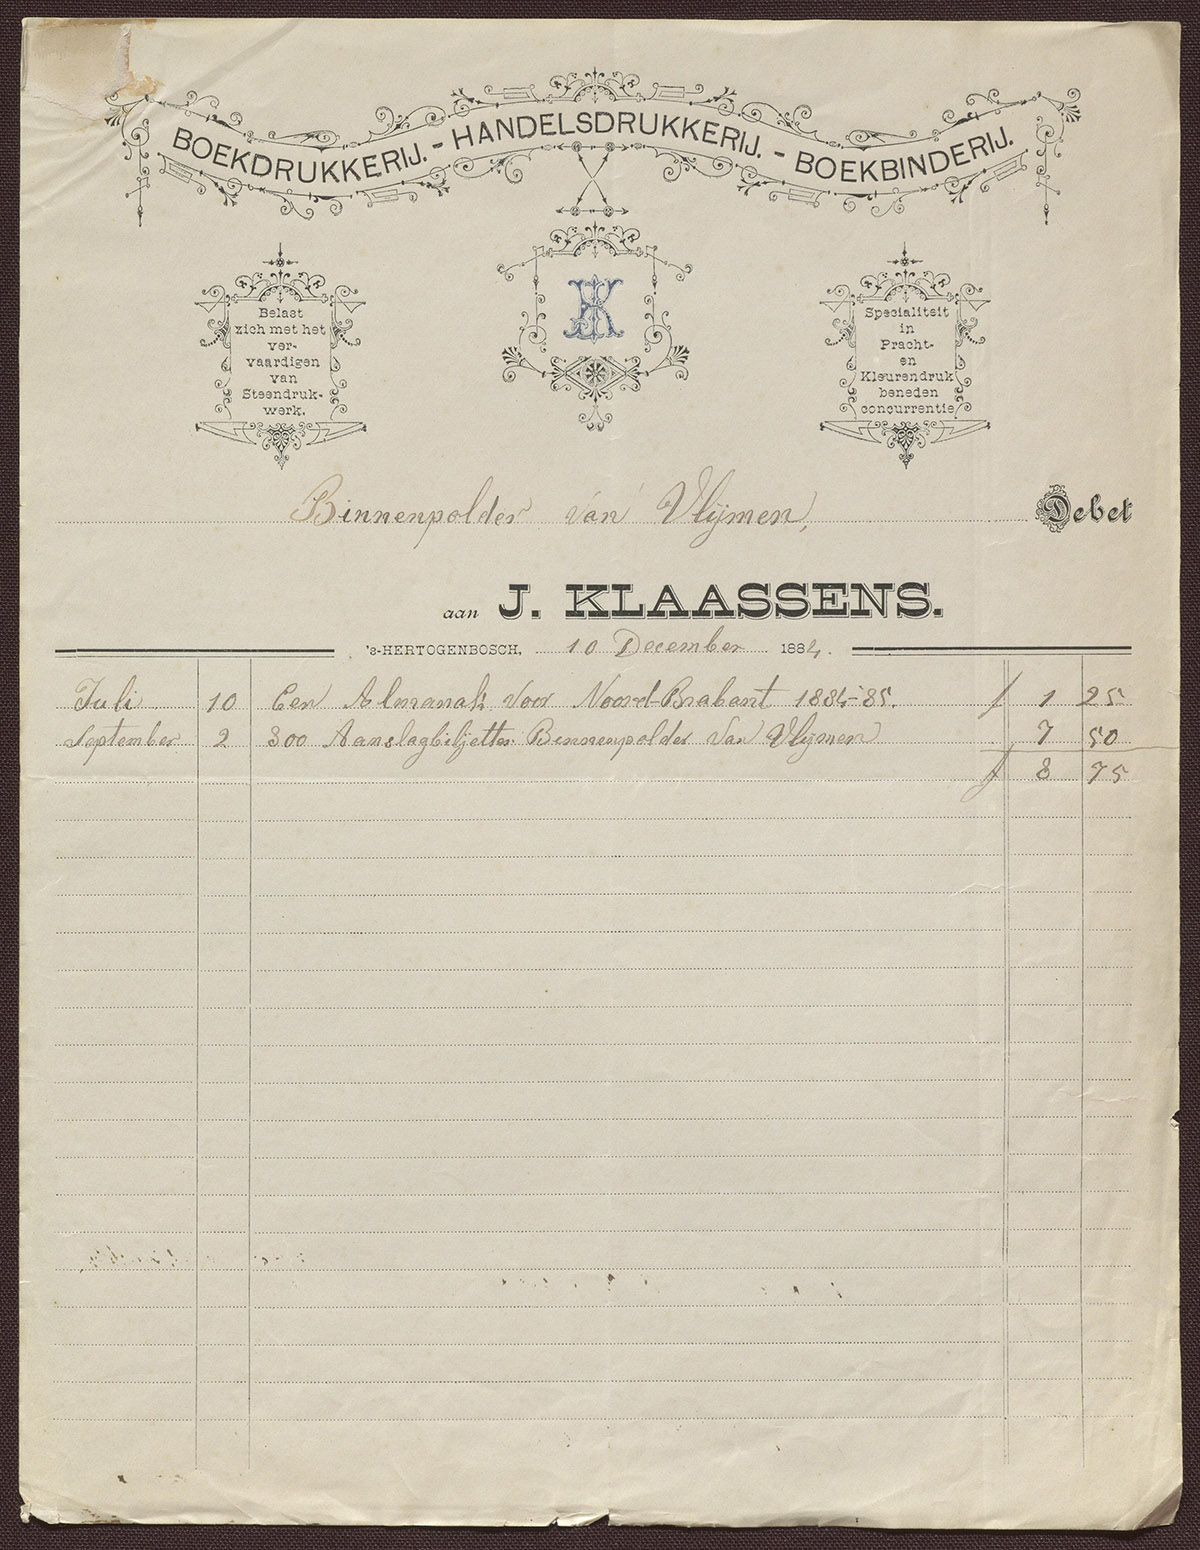 BOEKDRUKKERIJ. - HANDELSDRUKKERIJ. - BOEKBINDERIJ.
Belast
zich met het
ver-
vaardigen
van
Steendruk-
werk.
JK
Specialiteit
in
Pracht-
en
Kleurendruk
beneden
concurrentie
Binnenpolder van Vlijmen, Debet
aan J. KLAASSENS.
's-HERTOGENBOSCH, 10 December 1884.
Juli 10 Een Almanak voor Noord-Brabant 1884-85. f 1 25
September 2 300 Aanslagbiljetten Binnenpolder van Vlijmen 7 50
f 8 75